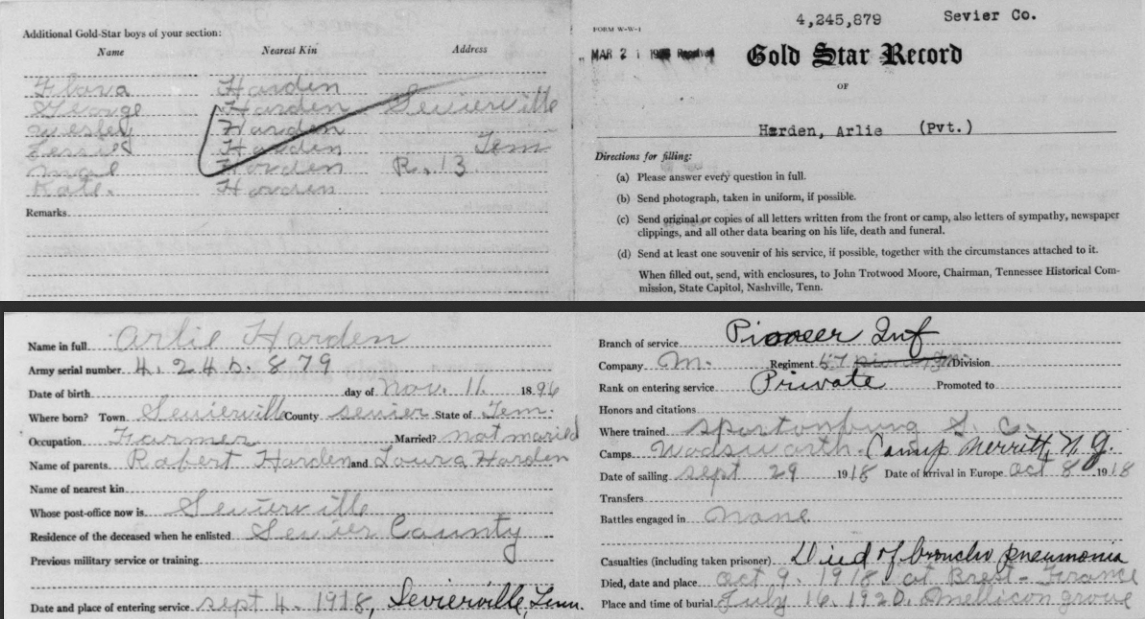 Additional Gold-Star boys of your section:
Name Nearest Kin Address
Flora Harden
George Harden Sevierville
Wesley Harden
Harden Tenn
Harden R. 13
Kate. Harden
Remarks
4,245,879 Sevier Co.
FORM W-W-1
MAR 21 Received
Gold Star Record
OF
Harden, Arlie (Pvt.)
Directions for filling:
(a) Please answer every question in full.
(b) Send photograph, taken in uniform, if possible.
(c) Send original or copies of all letters written from the front or camp, also letters of sympathy, newspaper
clippings, and all other data bearing on his life, death and funeral.
(d) Send at least one souvenir of his service, if possible, together with the circumstances attached to it.
When filled out, send, with enclosures, to John Trotwood Moore, Chairman, Tennessee Historical Com-
mission, State Capitol, Nashville, Tenn.
Name in full Arlie Harden
Army serial number 4. 245. 879
Date of birth day of Nov. 11 1896
Where born? Town Sevierville County sevier State of Tenn.
Occupation Farmer Married? not maried
Name of parents Robert Harden and Laura Harden
Name of nearest kin
Whose post-office now is Sevierville
Residence of the deceased when he enlisted Sevier County
Previous military service or training
Date and place of entering service sept 4. 1918, Sevierville, Tenn.
Branch of service Pioneer Inf
Company M. Regiment 57 Division
Rank on entering service Private Promoted to
Honors and citations
Where trained Spartonburg S. C.
Camps Wodsworth. Camp Merritt, N. J.
Date of sailing sept 29 1918 Date of arrival in Europe oct 8 1918
Transfers
Battles engaged in none
Casualties (including taken prisoner) Died of broncho pneumonia
Died, date and place oct 9. 1918. at Brest - France
Place and time of burial July 16. 1920. grove